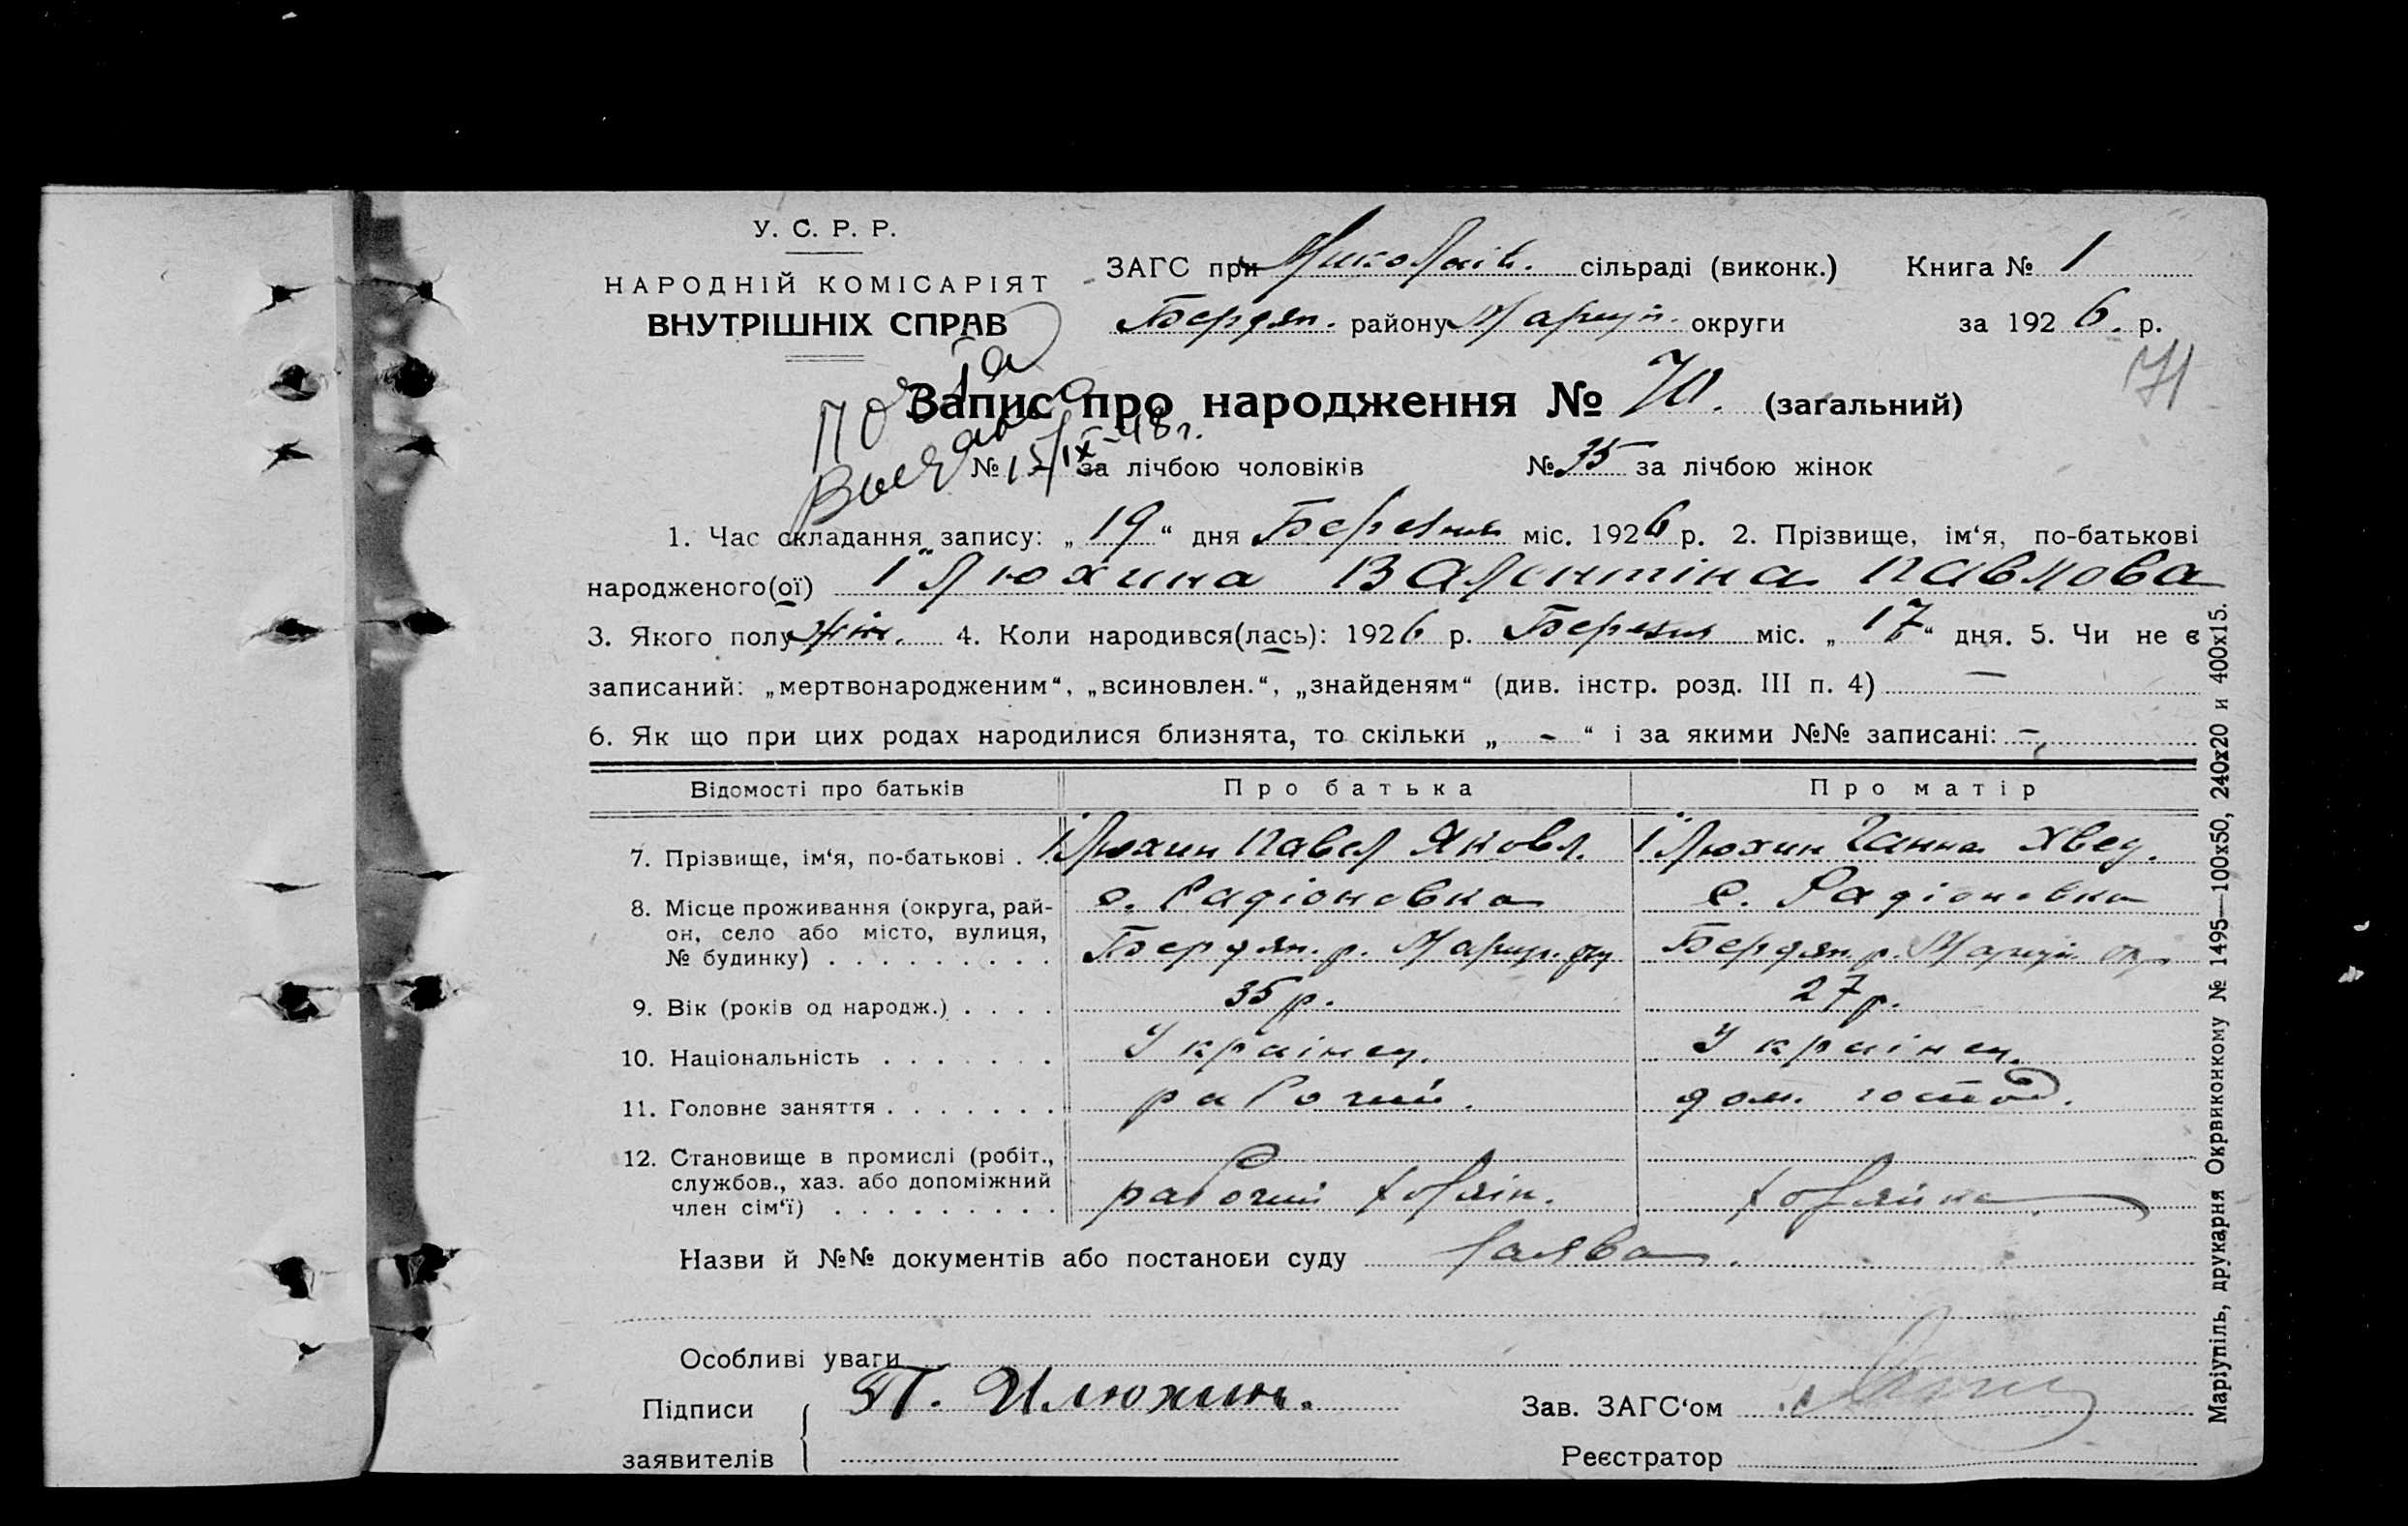 У. С. Р. Р.
НАРОДНІЙ КОМІСАРІЯТ
ВНУТРІШНІХ СПРАВ
ЗАГС при Миколаїв. сільраді (виконк.) Книга № 1
Бердян. району Маріуп. округи за 1926. р.
71
Запис про народження № 70. (загальний)
Выдана
15/IX-48 г.
№ за лічбою чоловіків № 35 за лічбою жінок
1. Час складання запису: „19“ дня Березня міс. 1926 р. 2. Прізвище, ім‘я, по-батькові
народженого(ої) Ілюхина Валентіна Павлова
3. Якого полу жін. 4. Коли народився(лась): 1926 р. Березня міс. „17“ дня. 5. Чи не є
записаний: „мертвонародженим“, „всиновлен.“, „знайденям“ (див. інстр. розд. III п. 4) —
6. Як що при цих родах народилися близнята, то скільки „ - “ і за якими №№ записані: —
Відомості про батьків Про батька Про матір
7. Прізвище, ім‘я, по-батькові . Ілюхин Павел Яковл. Ілюхин Ганна Хвед.
8. Місце проживання (округа, рай-он, село або місто, вулиця, № будинку) . . . . . . . . . с. Радіоновка Бердян. р. Маріуп. окр с. Радіоновка Бердян. р. Маріуп. окр
9. Вік (років од народж.) . . . . 35 р. 27 р.
10. Національність . . . . . . . Украінец. Украінец.
11. Головне заняття . . . . . . . рабочий. дом. господ.
12. Становище в промислі (робіт., службов., хаз. або допоміжний член сім‘ї) . . . . . . . . . рабочий хозяін. хозяйка
Назви й №№ документів або постанови суду Заява.
Особливі уваги
Підписи заявителів П. Илюхин.
Зав. ЗАГС‘ом
Реєстратор
Маріупіль, друкарня Окрвиконкому № 1495—100х50, 240х20 и 400х15.